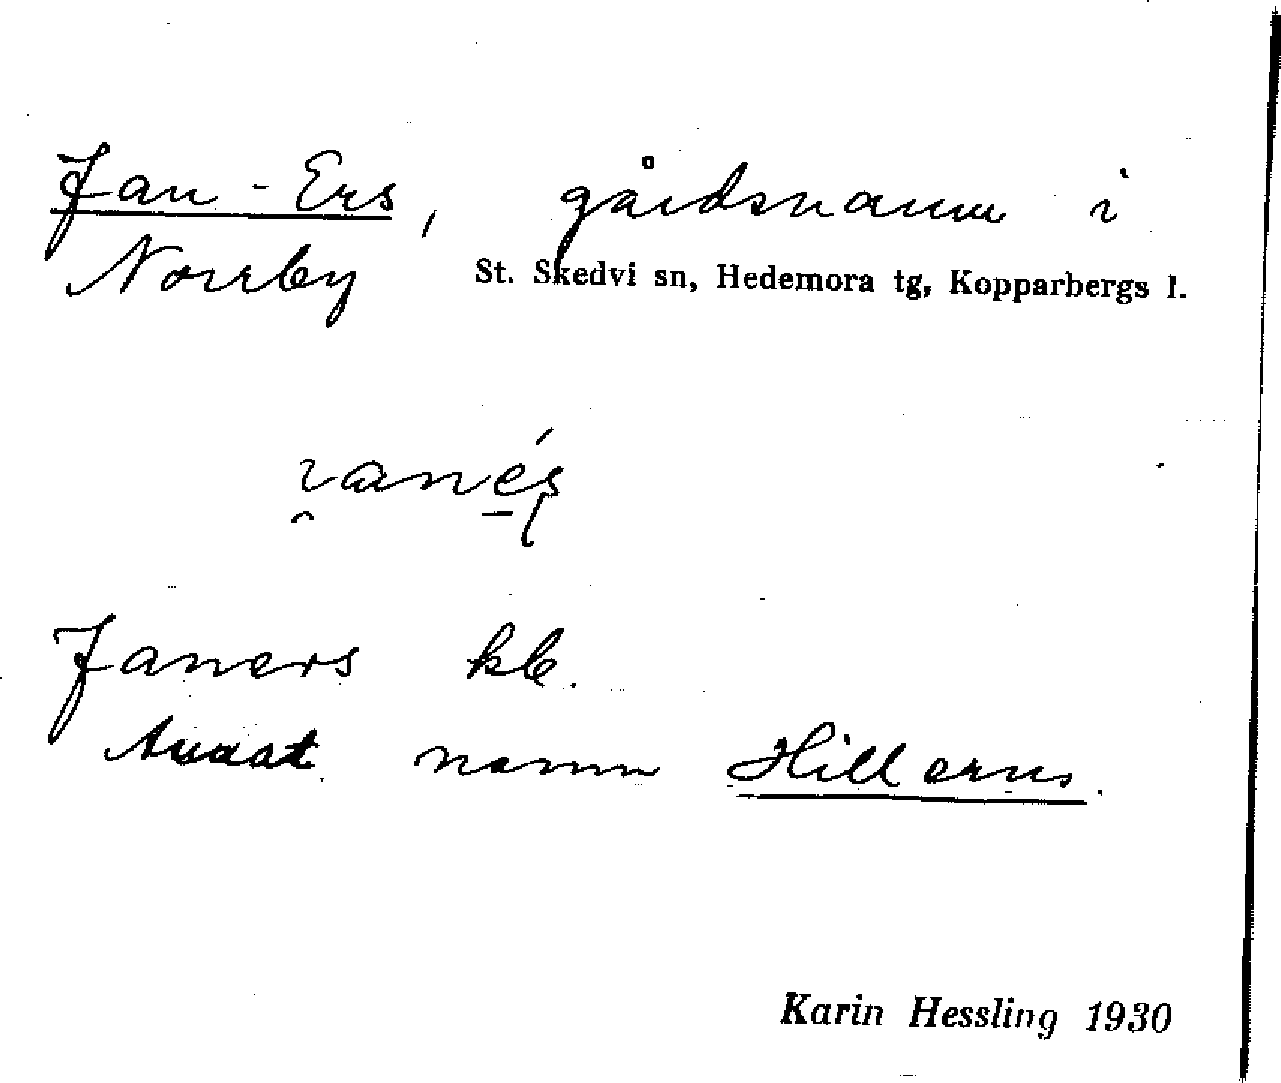 Jan-Ers, gårdsnamn i
Norrby St. Skedvi sn, Hedemora tg, Kopparbergs l.
Janers kb.
Annat namn Hillerns.
Karin Hessling 1930